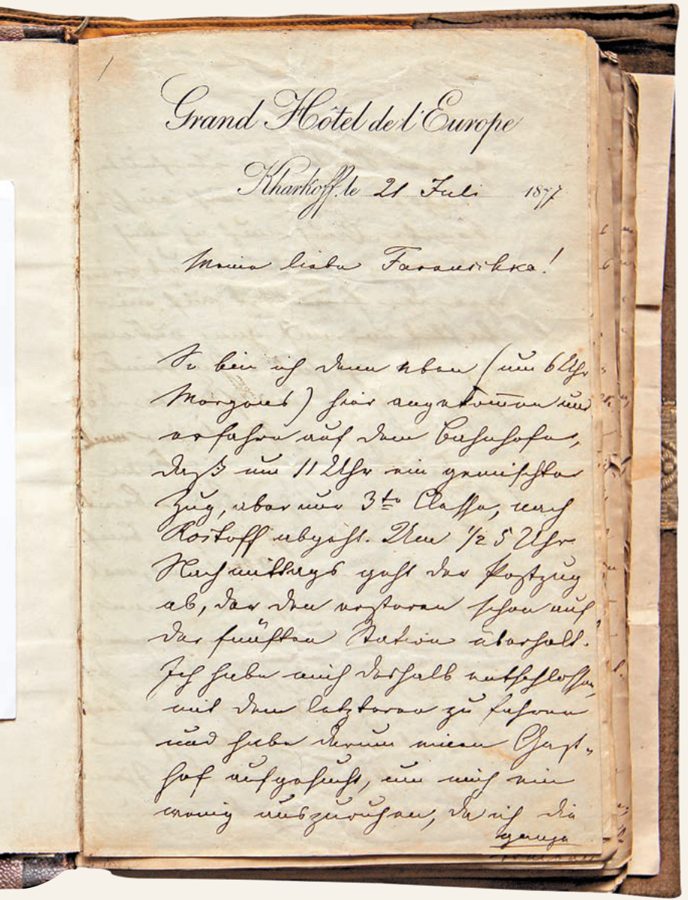 Grand Hôtel de l'Europe
Kharkoff, le 21 Juli 1877
Meine liebe
So bin ich denn eben (um 6 Uhr
Morgens) hier angekom̅en und
erfahre auf dem Bahnhofe,
daß um 11 Uhr ein gemischter
Zug, aber nur 3te Classe, nach
Rostoff abgeht. Um ½ 5 Uhr
Nachmittags geht der Postzug
ab, der den ersteren schon auf
der fünften Station überholt.
Ich habe mich deshalb entschlossen,
mit dem letzteren zu fahren
und habe darum einen Gast-
hof aufgesucht, um mich ein
wenig auszuruhen, da ich die
ganze